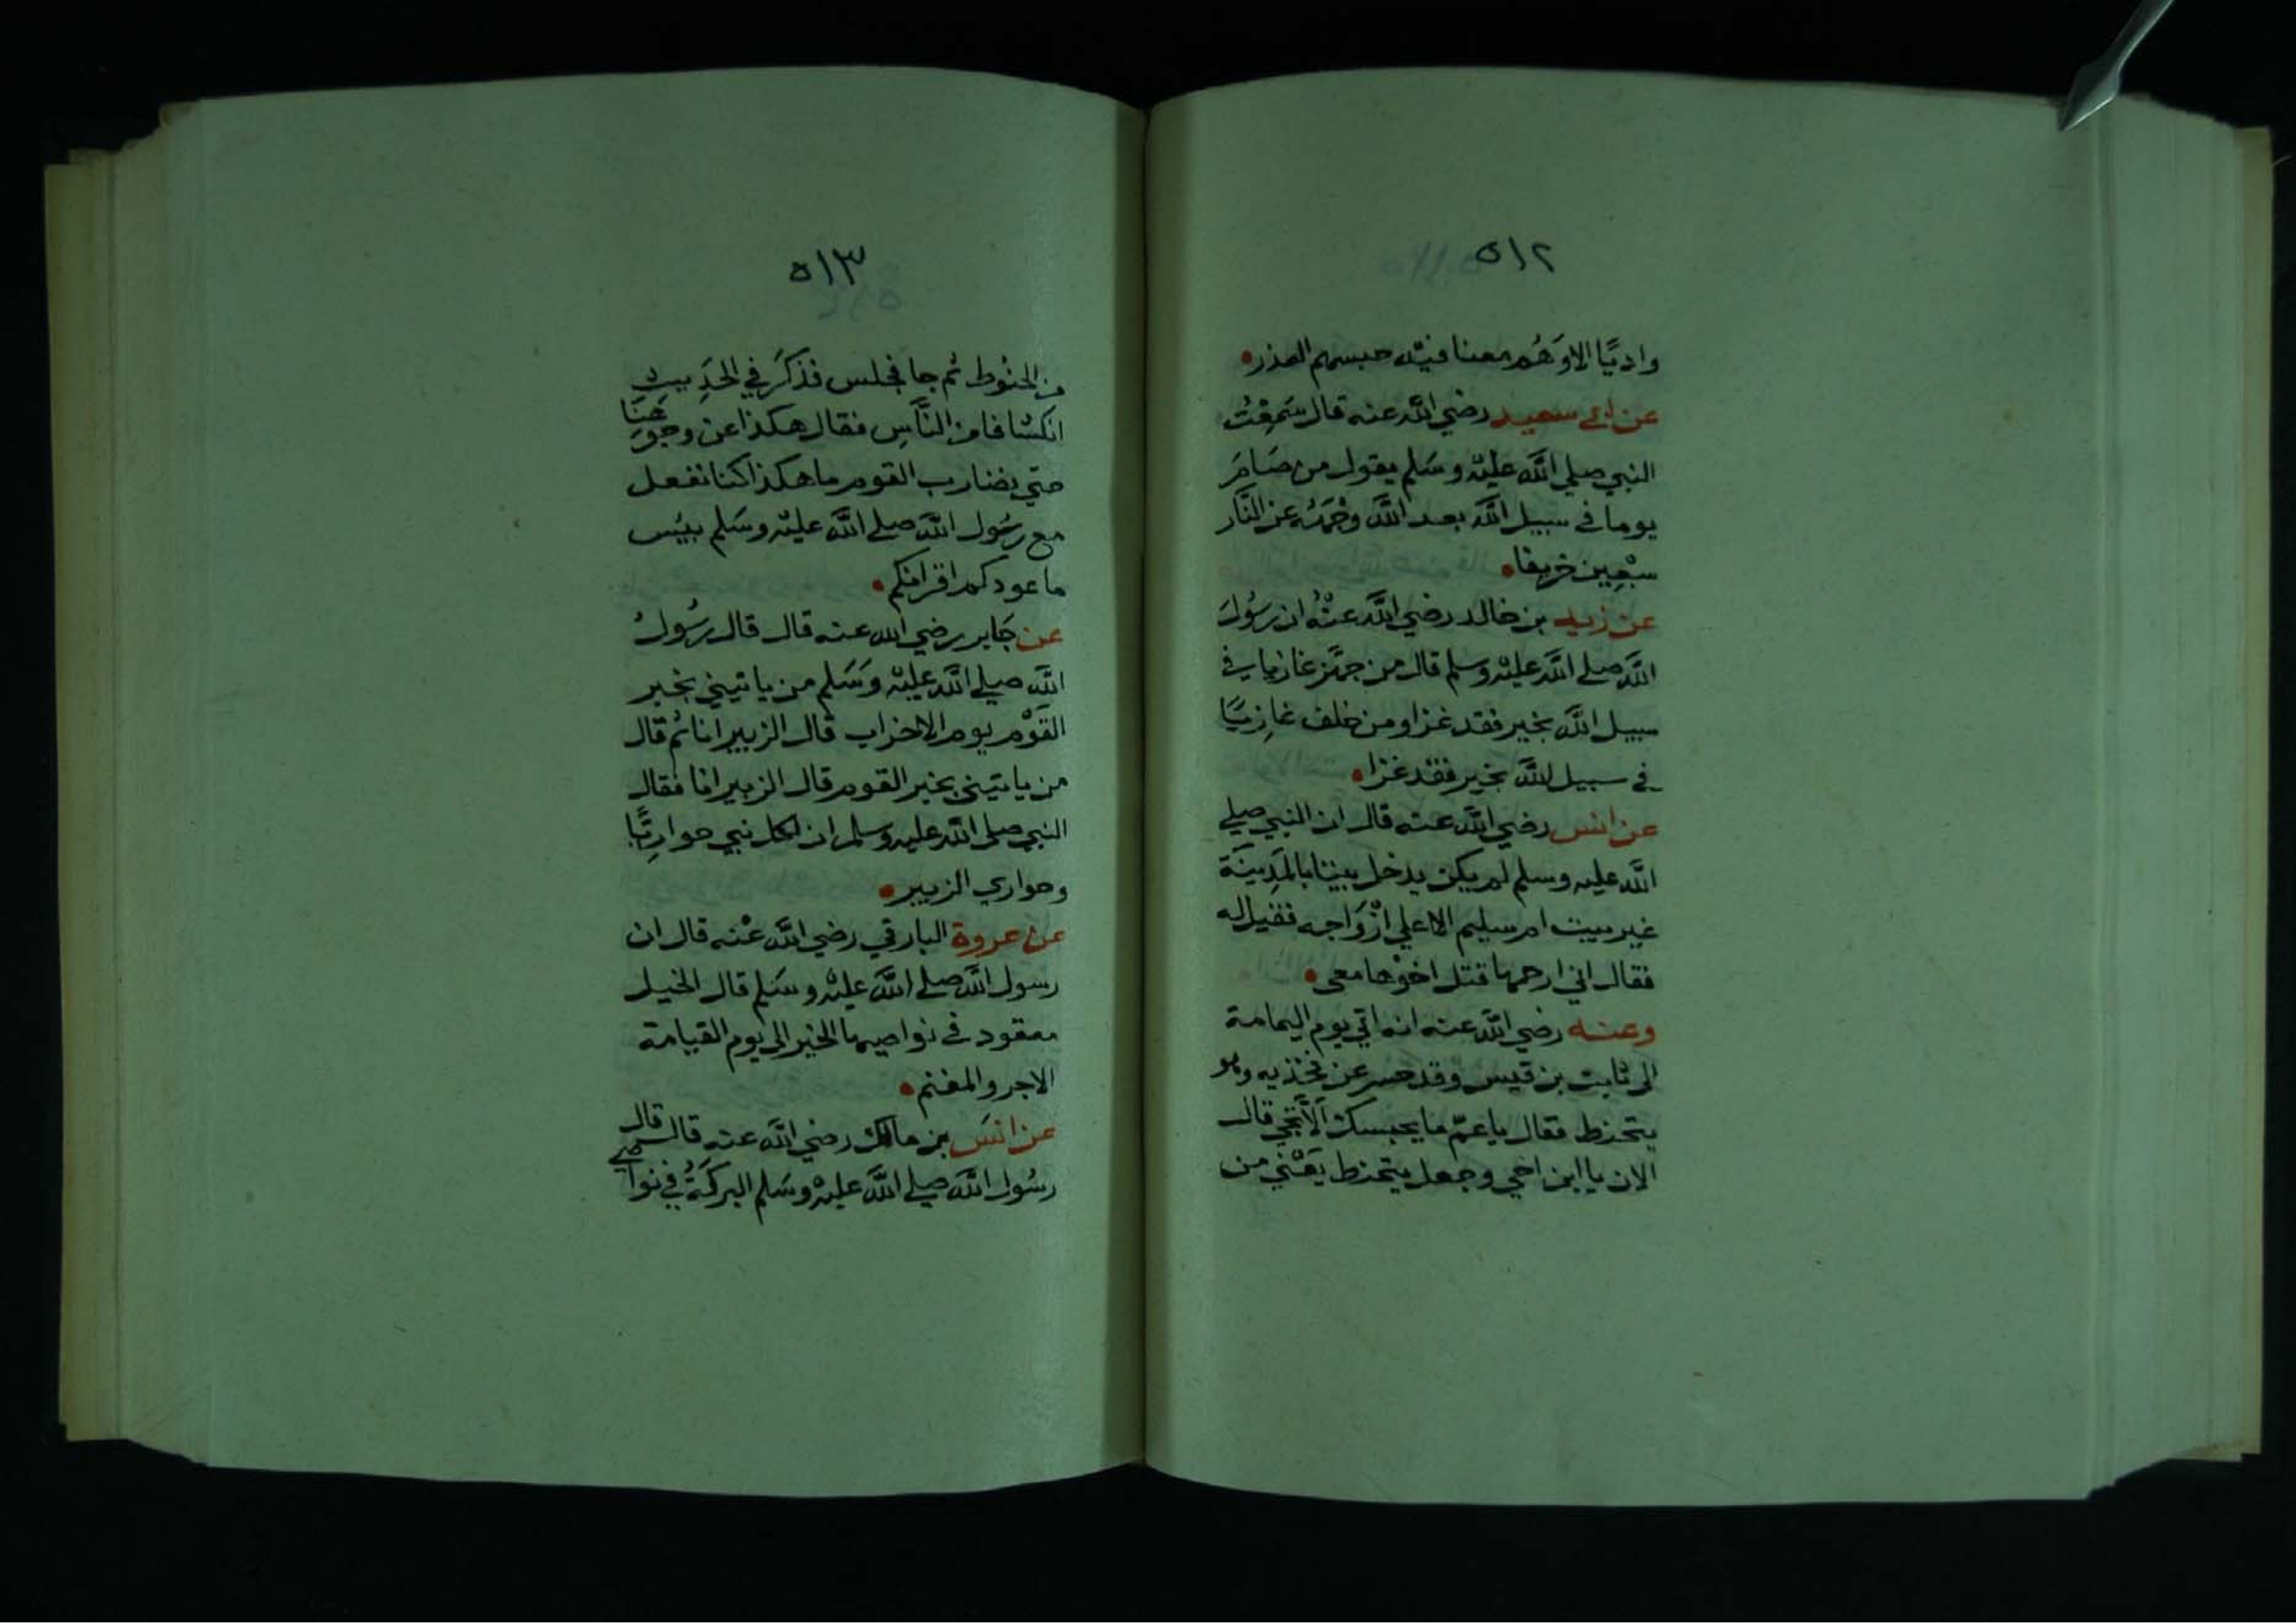 ٥١٢
واديًا الا وَهُم معنا فيْه حبسهم العذر
عن ابي سعيد رضي اللَّه عنه قال سَمِعْتُ
النبي صلي اللَّه عليْه وسَلم يقول من صَامَ
يوما في سبيل اللَّه بعد اللَّه وجْهَهُ عن النَّار
سبْعِين خريفا
عن زيد بن خالد رضي اللَّه عنْهُ ان رسُولَ
اللَّه صلے اللَّه عليْه وسلم قال من جهَّز غازيا في
سبيل اللَّه بخير فقد غزا ومن خلف غازِيًا
في سبيل اللَّه بخير فقد غزا
عن انس رضي اللَّه عنه قال ان النبي صلي
اللَّه عليه وسلم لم يكن يدخل بيتا بالمَدِينَة
غير بيت ام سليم الا علي ازْوَاجه فقيل له
فقال اني ارحمها قتل اخوْها معي
وعنه رضي اللَّه عنه انه اتي يوم اليمامة
الى ثابت بن قيس وقد حسر عن فخذيه وهو
يتحنط فقال يا عمّ ما يحبسك الَّا تجي قال
الان يا ابن اخي وجعل يتحنط يَعْني من
٥١٣
من الحنُوط ثم جا فجلس فذكَرَ في الحَدِيث
انكشافا من النَّاسِ فقال هكذا عن وجوهِنَا
حتي نضارب القوم ما هكذا كنا نفعل
مع رسُول اللَّه صلے اللَّه عليْه وسَلم بيُس
ما عودكم اقرانكم
عن جَابر رضي الله عنه قال قال رسُولُ
اللَّه صلي اللَّه عليْه وَسَلم من ياتيني بخبر
القَوْم يوم الاحزاب قال الزبير انا ثُم قال
من ياتيني بخبر القوم قال الزبير انا فقال
النبي صلى اللَّه عليه وسلم ان لكل نبي حوارِيًّا
وحواري الزبير
عن عروة البارقي رضي اللَّه عنْه قال ان
رسول اللَّه صلے اللَّه عليْه وسَلم قال الخيل
معقود في نواصيها الخير الى يوم القيامة
الاجر والمغنم
عن انسَ بن مالك رضي اللَّه عنه قال قال
رسُول اللَّه صلے اللَّه عليْه وسَلم البركَةُ في نواصي